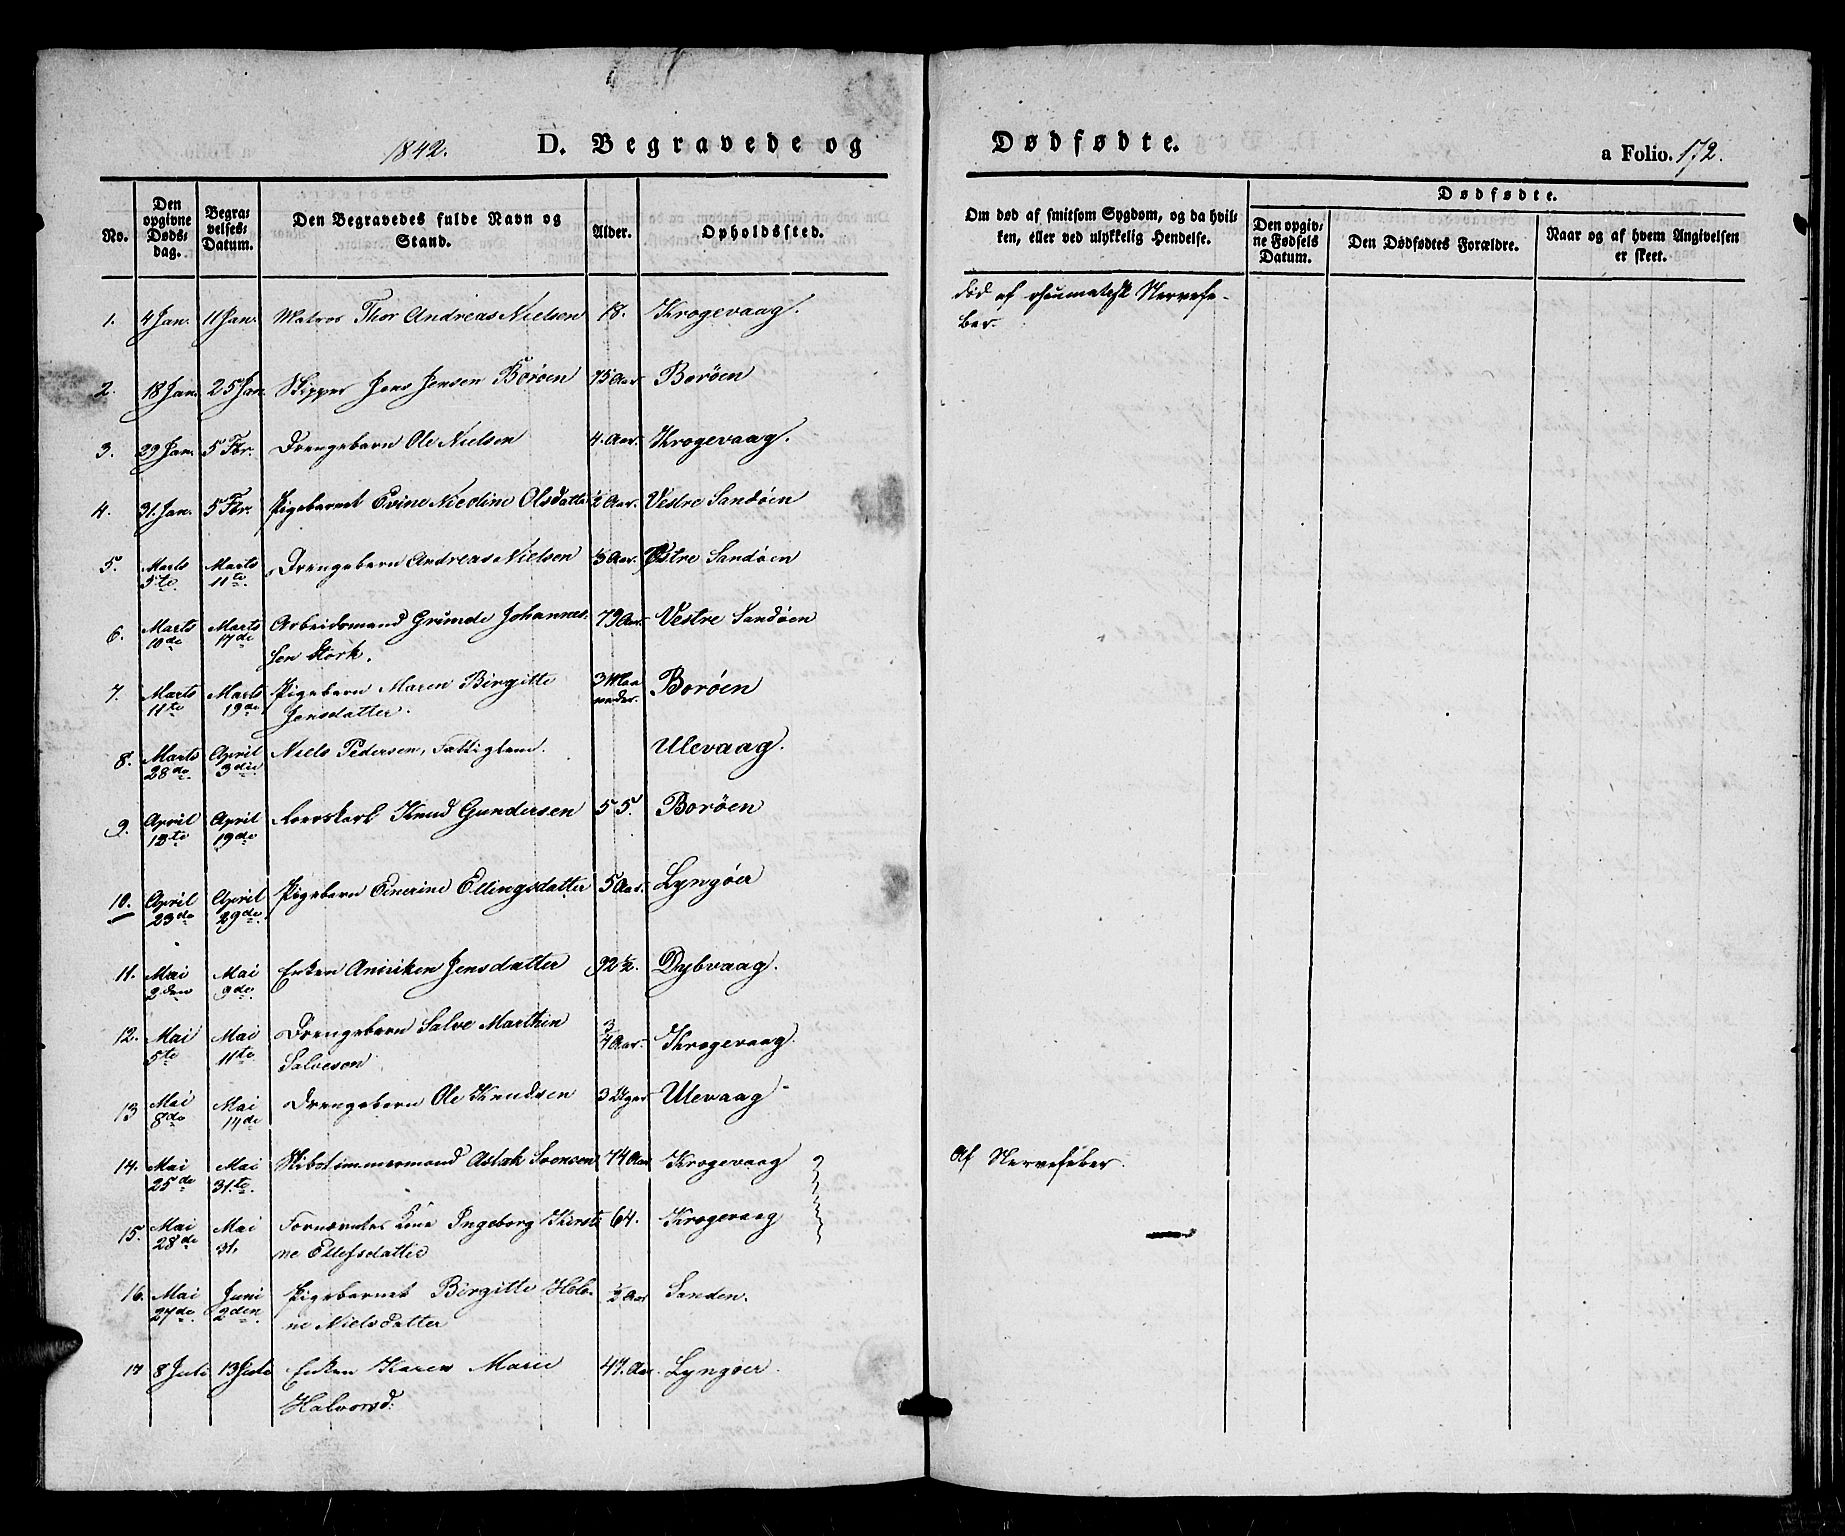 1842. D. Begravede og Dødfødte. a Folio. 172.
No. Den opgivne Dødsdag. Begravelses-Datum. Den Begravedes fulde Navn og Stand. Alder. Opholdssted. Om død af smitsom Sygdom, og da hvilken, eller ved ulykkelig Hendelse. Dødfødte. Den opgivne Fødsels Datum. Den Dødfødtes Forældre. Naar og af hvem Angivelsen er skeet.
1. 4 Jan. 11 Jan. Matros Thor Andreas Nielsen 18. Krogevaag. død af rheumatisk Nervefe-
ber.
2. 18 Jan. 25 Jan. Skipper Jens Jensen Borøen 75 Aar Borøen
3. 29 Jan. 5 Fbr. Drengebarn Ole Nielsen 4. Aar. Krogevaag.
4. 31. Jan. 5 Fbr. Pigebarnet Evine Nicoline Olsdatter 1/2 Aar. Vestre Sandøen
5. Marts 5te Marts 11te Drengebarn Andreas Nielsen Aar. Østre Sandøen
6. Marts 10de Marts 17de Arbeidsmand Grunde Johannes- 79 Aar. Vestre Sandøen
sen Stork.
7. Marts 11te Marts 19de Pigebarn Maren Birgitte 3 Maaneder. Borøen
Jensdatter.
8. Marts 28de April 3die Niels Pedersen, Fattiglem. Ulevaag.
9. April 13te April 19de Knud Gundersen 55. Borøen
10. April 23de April 29de Pigebarn Enerine Ellingsdatter 5 Aar. Lyngøer
11. Mai 2den Mai 9de Enken Jensdatter 92 1/2. Dybvaag.
12. Mai 5te Mai 11te Drengebarn Salve Marthin 3/4 Aar. Krogevaag.
Salvesøn
13 Mai 8de Mai 14de Drengebarn Ole Knudsen 3 Uger Ulevaag
14. Mai 25de Mai 31te. Skibstømmermand Aslak Svensen 74 Aar Krogevaag Af Nervefeber.
15. Mai 28de Mai 31. Fornævntes Kone Ingeborg Kirsti- 64. Krogevaag
ne Ellefsdatter
16. Mai 27de Juni 2den Pigebarnet Birgitte Hele- 1/2 Aar Sanden.
ne Nielsdatter
17 8 Juli 13 Juli Enken Karen Marie 47. Aar. Lyngøer.
Halvorsd: